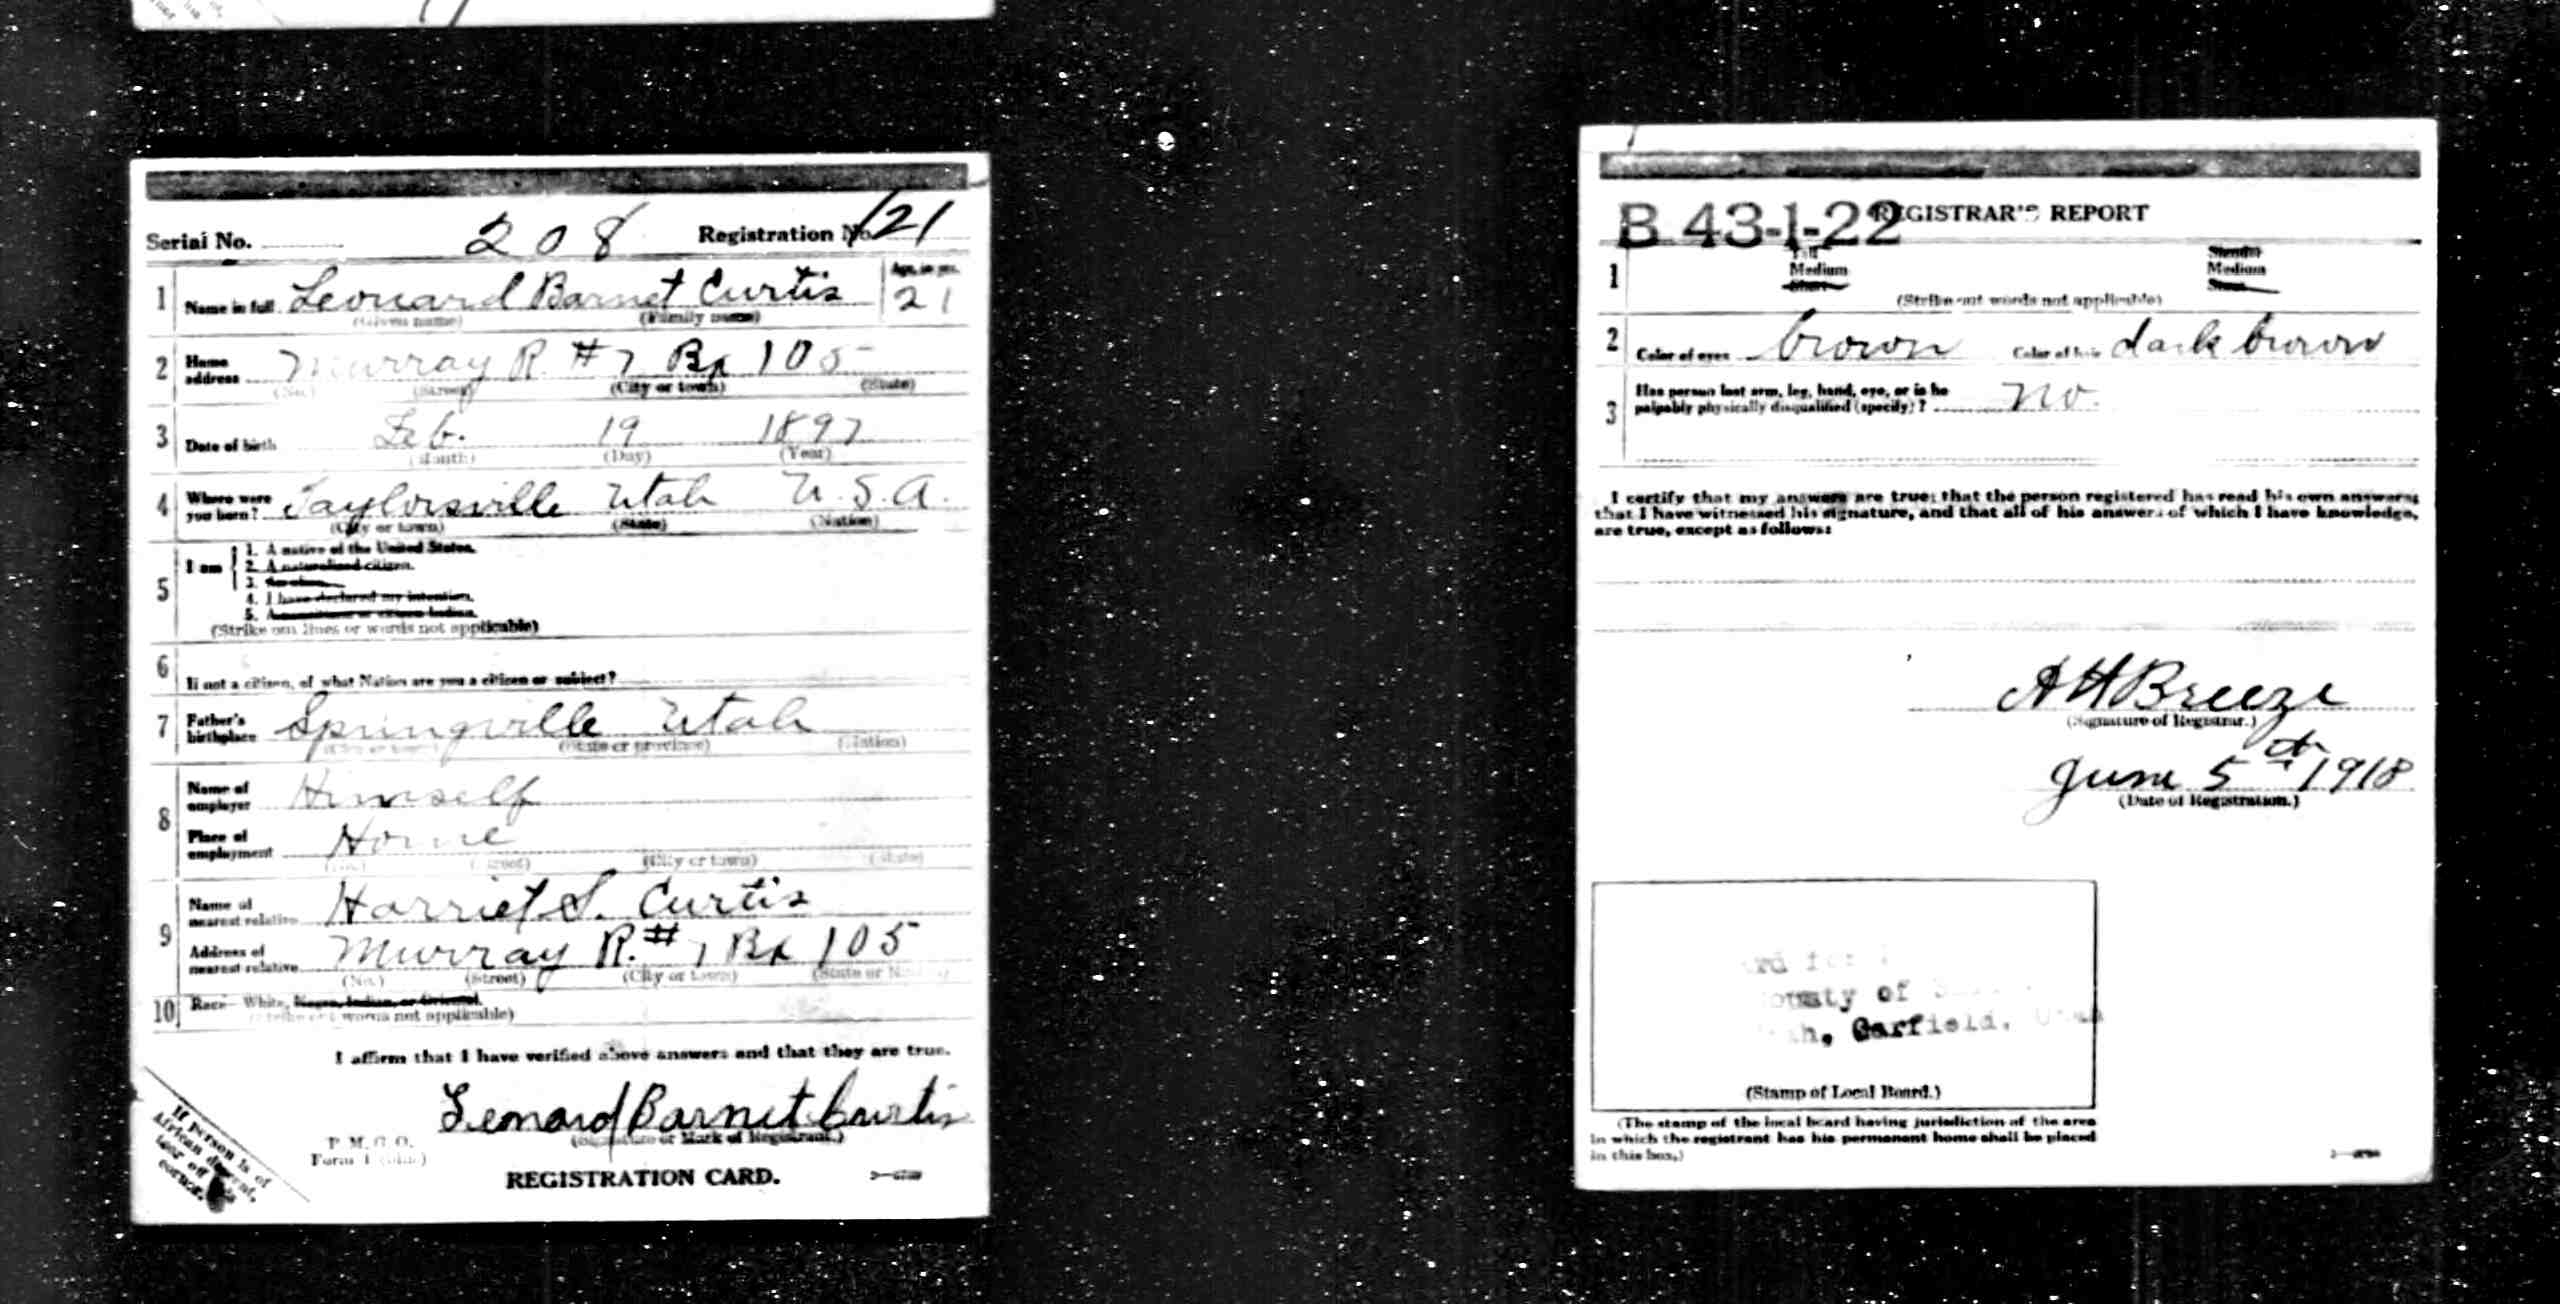 Serial No. 208 Registration No. 121
1 Name in full Leonard Barnet Curtis Age, in yrs. 21
(Given name) (Family name)
2 Home address Murray R. #7 Bx 105
(No.) (Street) (City or town) (State)
3 Date of birth Feb. 19 1897
(Month) (Day) (Year)
4 Where were you born? Taylorsville Utah U.S.A.
(City or town) (State) (Nation)
5 I am
1. A native of the United States.
2. A naturalized citizen.
3. An alien.
4. I have declared my intention.
5. A noncitizen or citizen Indian.
(Strike out lines or words not applicable)
6 If not a citizen, of what Nation are you a citizen or subject?
7 Father's birthplace Springville Utah
(City or town) (State or province) (Nation)
8 Name of employer Himself
Place of employment Home
(No.) (Street) (City or town) (State)
9 Name of nearest relative Harriet S. Curtis
Address of nearest relative Murray R. #7 Bx 105
(No.) (Street) (City or town) (State or Nation)
10 Race White, Negro, Indian, or Oriental.
(Strike out words not applicable)
I affirm that I have verified above answers and that they are true.
Leonard Barnet Curtis
(Signature or Mark of Registrant.)
P. M. G. O.
Form 1 (blue)
REGISTRATION CARD.
If person is of
African descent,
tear off this
corner.
B 43-1-22 REGISTRAR'S REPORT
1 Tall Slender
Medium Medium
Short Stout
(Strike out words not applicable)
2 Color of eyes brown Color of hair dark brown
3 Has person lost arm, leg, hand, eye, or is he
palpably physically disqualified (specify)? no.
I certify that my answers are true; that the person registered has read his own answers;
that I have witnessed his signature, and that all of his answers of which I have knowledge,
are true, except as follows:
A H Breeze
(Signature of Registrar.)
June 5th 1918
(Date of Registration.)
County of
Garfield, Utah
(Stamp of Local Board.)
(The stamp of the local board having jurisdiction of the area
in which the registrant has his permanent home shall be placed
in this box.)